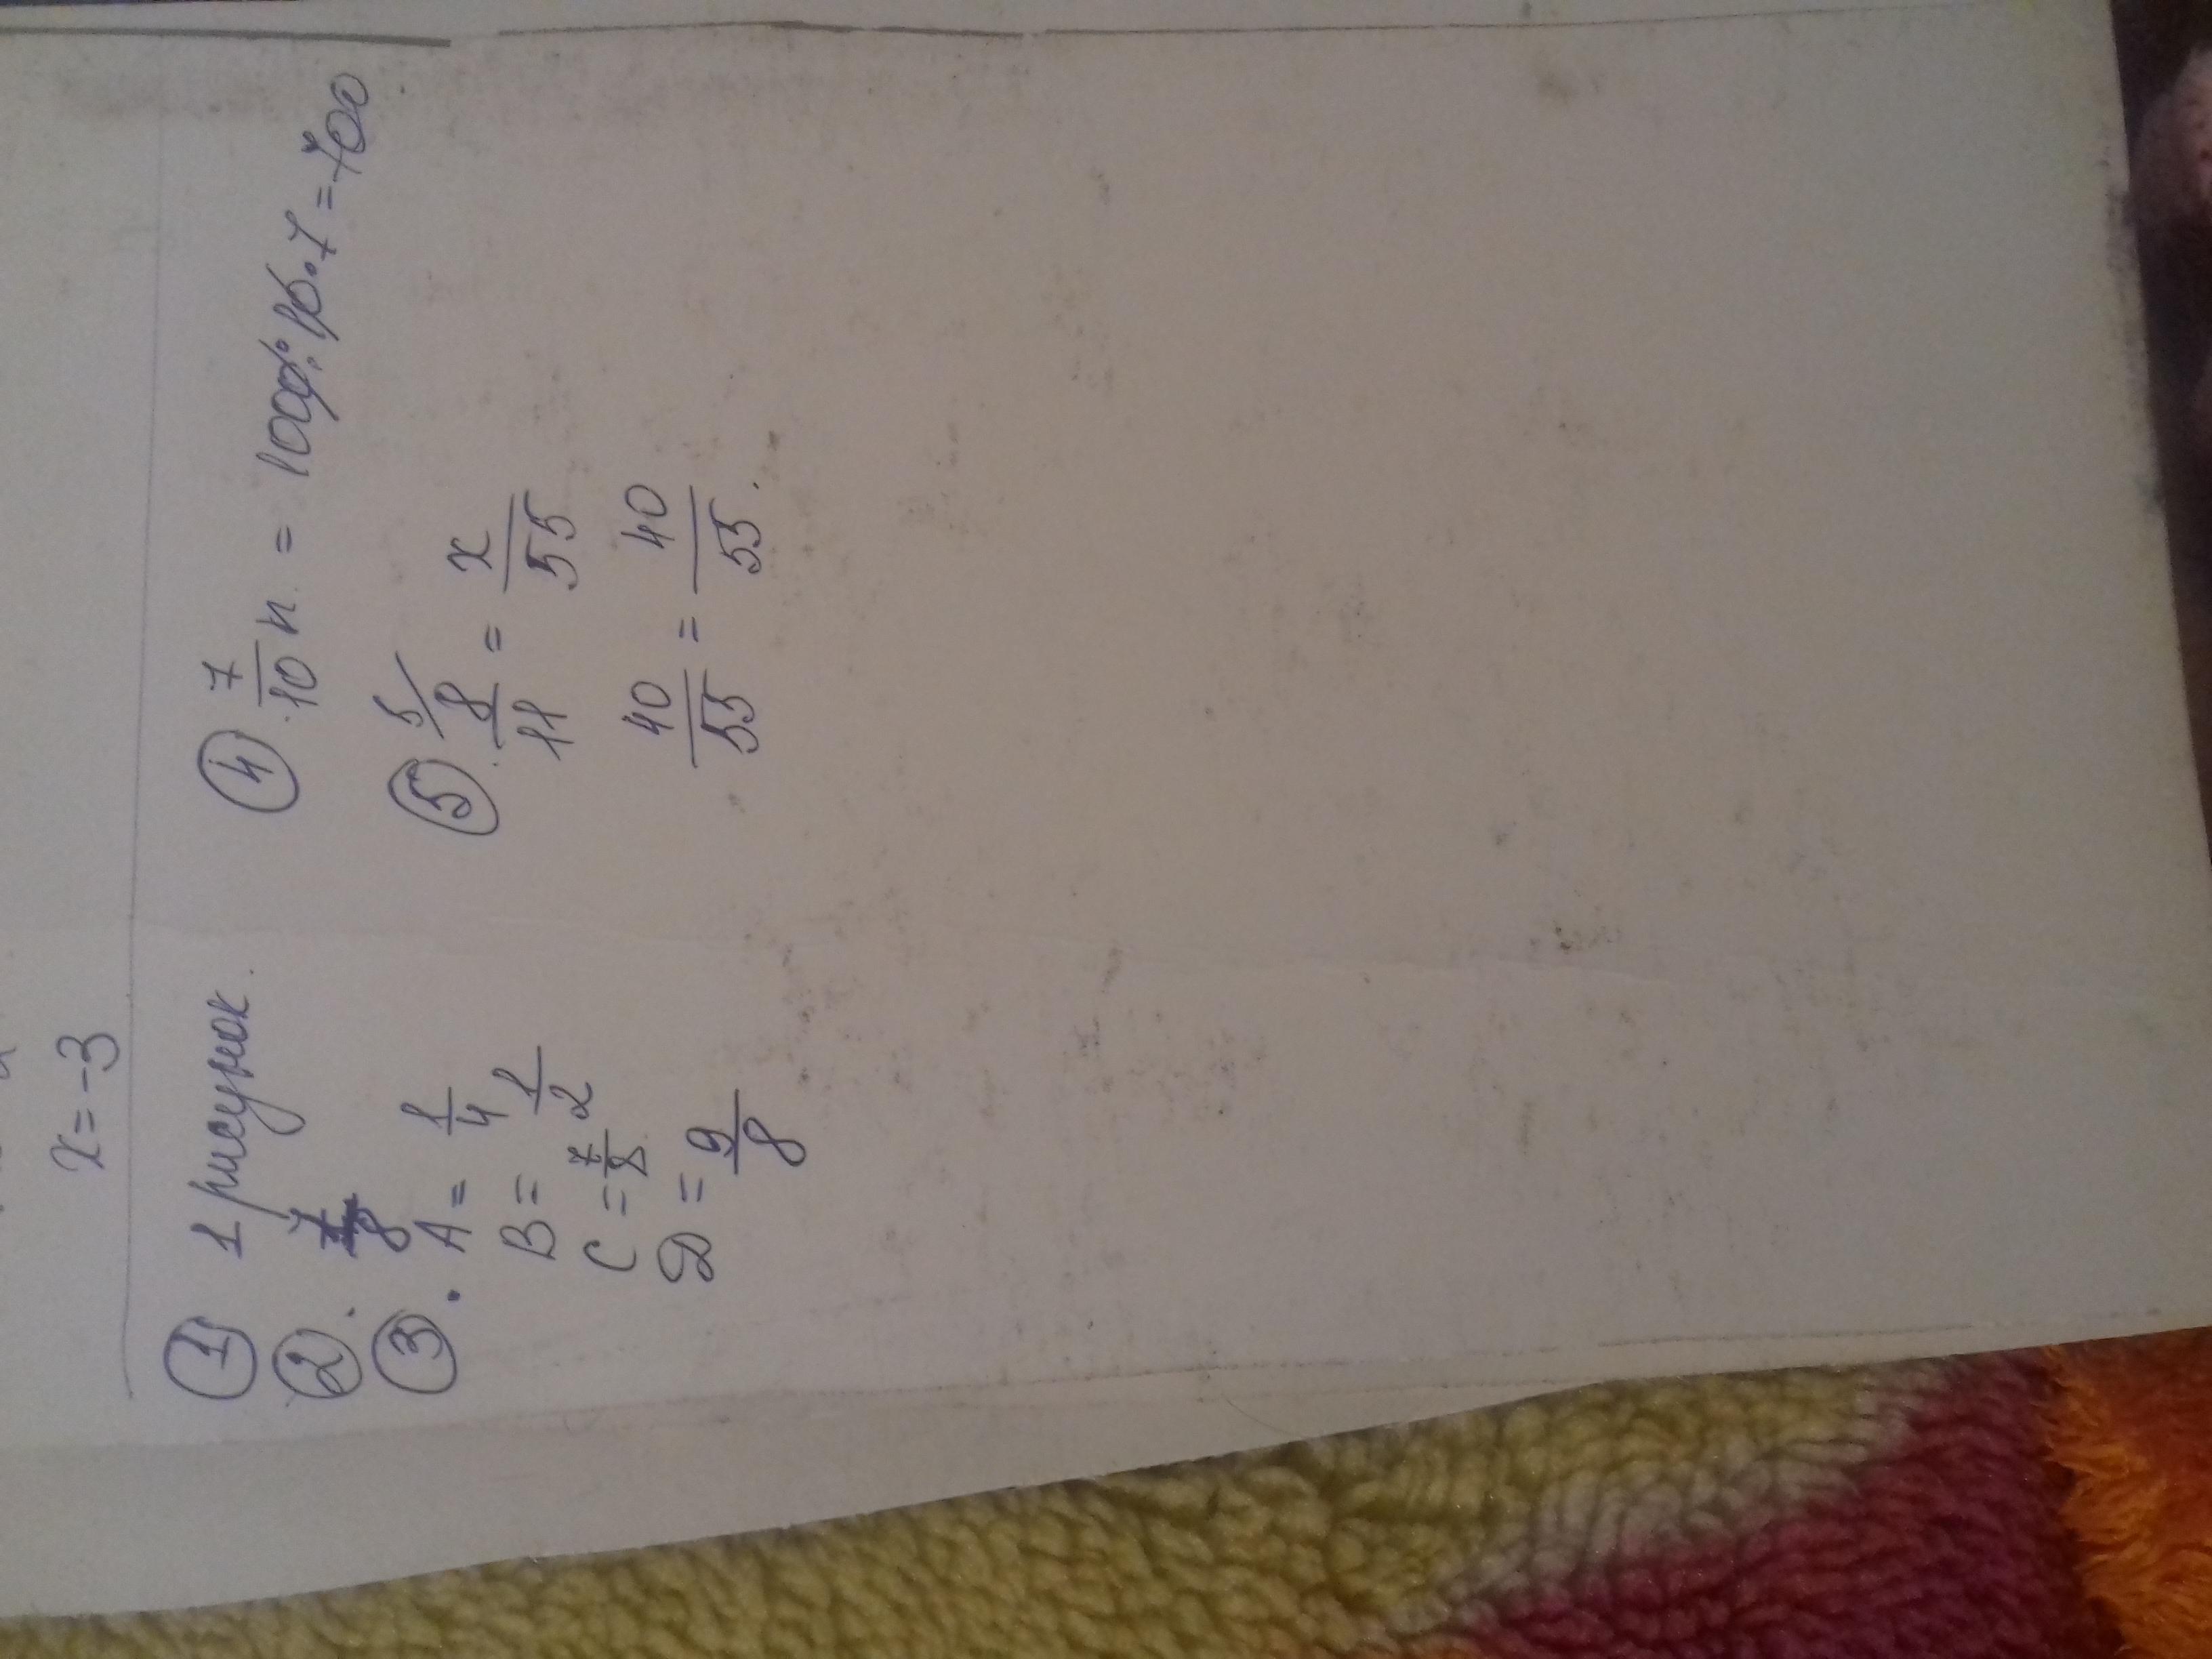 x = -3
① 1 рисунок.
② . 8
③ . A = 1/4
B = 1/2
C = 7/8
D = 9/8
④ 7/10 н. = 1000 : 10 · 7 = 700
⑤ 5/ 8/11 = x/55
40/55 = 40/55.